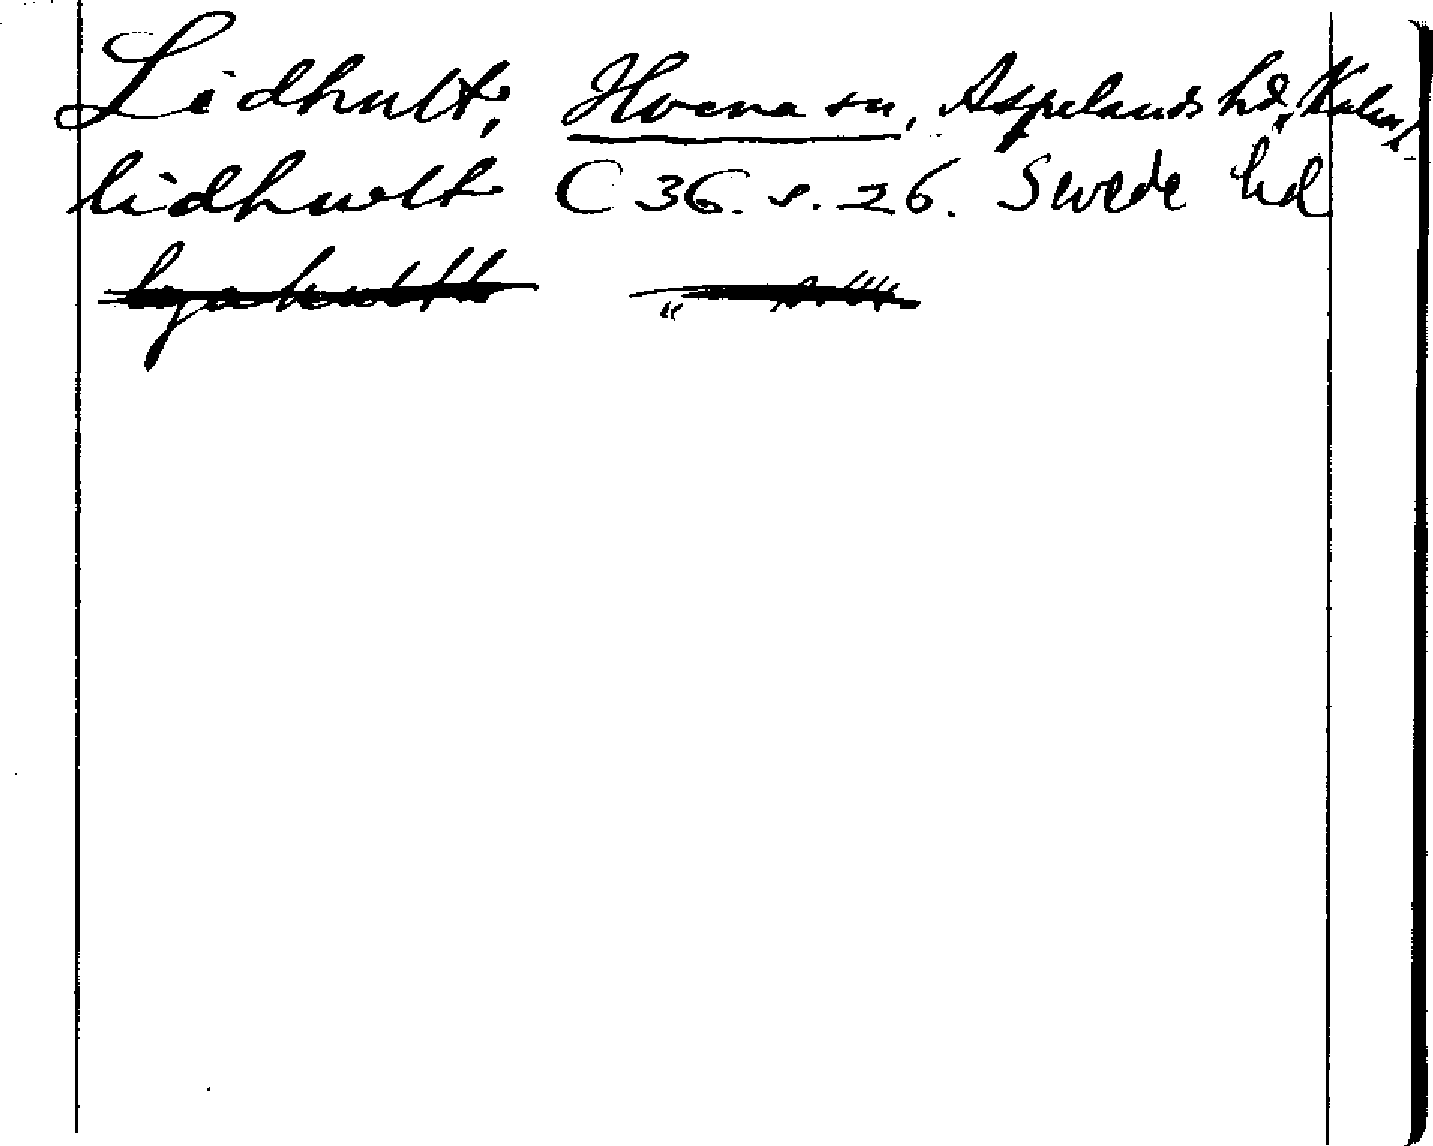 Lidhult, Hvena sn, Aspelands hd, Kalm,
lidhwlt C 36. s. 26. Swede hd